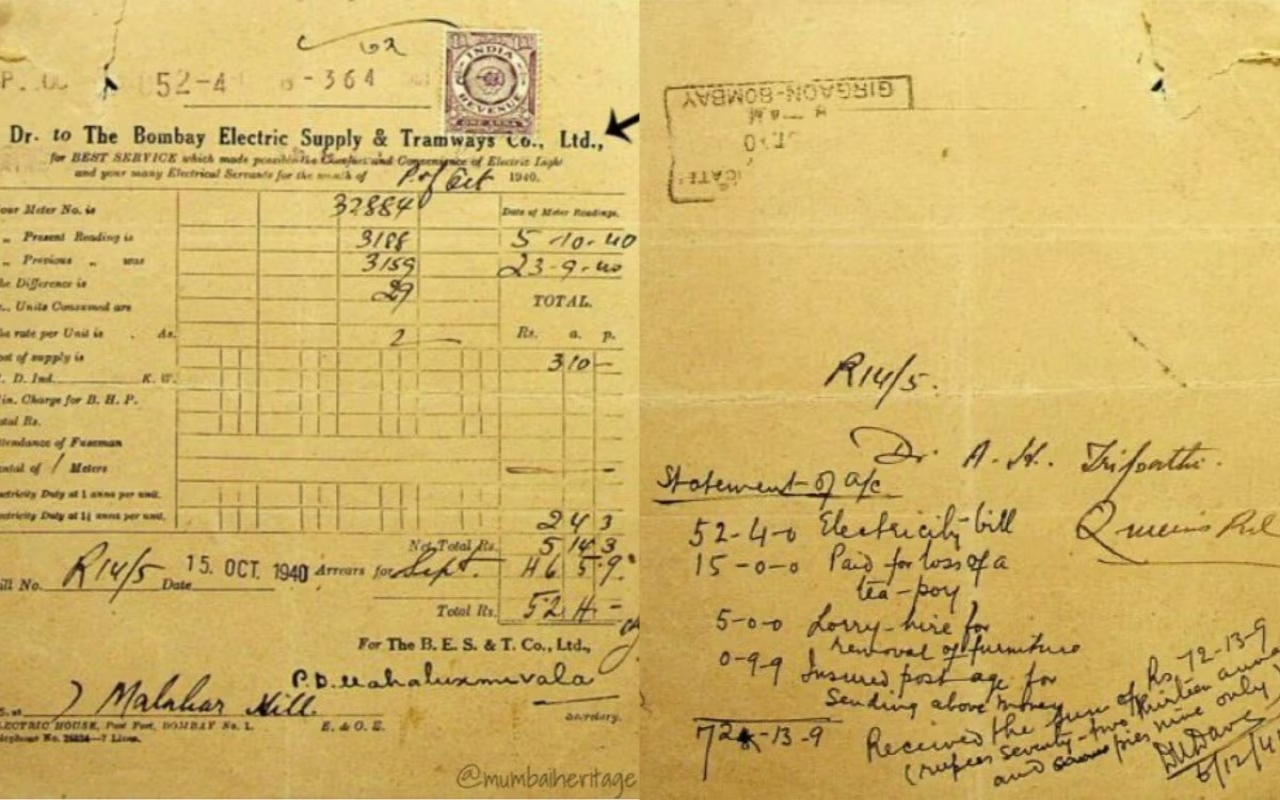 62
52-4
-364
INDIA
REVENUE
ONE ANNA
Dr. to The Bombay Electric Supply & Tramways Co., Ltd.,
for BEST SERVICE which made possible the Comfort and Convenience of Electric Light
and your many Electrical Servants for the month of P. of Oct 1940.
our Meter No. is 32884 Date of Meter Readings.
„ Present Reading is 3188 5-10-40
„ Previous „ was 3159 23-9-40
he Difference is 29
Units Consumed are TOTAL.
he rate per Unit is . As. 2 Rs. a. p.
ost of supply is 3 10 -
. D. Ind. K. W.
in. Charge for B. H. P.
otal Rs.
ttendance of Fuseman
ental of 1 Meters
ectricity Duty at 1 anna per unit.
ectricity Duty at 1¼ annas per unit. 2 4 3
Net Total Rs. 5 14 3
ill No. R14/5 Date 15. OCT. 1940 Arrears for Sept. 46 5 9
Total Rs. 52 4 -
For The B. E. S. & T. Co., Ltd.,
P.D. Mahaluxmivala
7 Malabar Hill.
Secretary.
ELECTRIC HOUSE, Post Fort, BOMBAY No. 1. E. & O. E.
7 Lines.
@mumbaiheritage
GIRGAON-BOMBAY
R14/5.
Dr. A. H. Tripathi.
Queens Rd
Statement of a/c
52-4-0 Electricity bill
15-0-0 Paid for loss of a
tea-poy
5-0-0 Lorry-hire for
removal of furniture
0-9-9 Insured postage for
Sending above money
72-13-9
Received the sum of Rs. 72-13-9
(rupees seventy-two thirteen annas
and pies nine only)
6/12/41